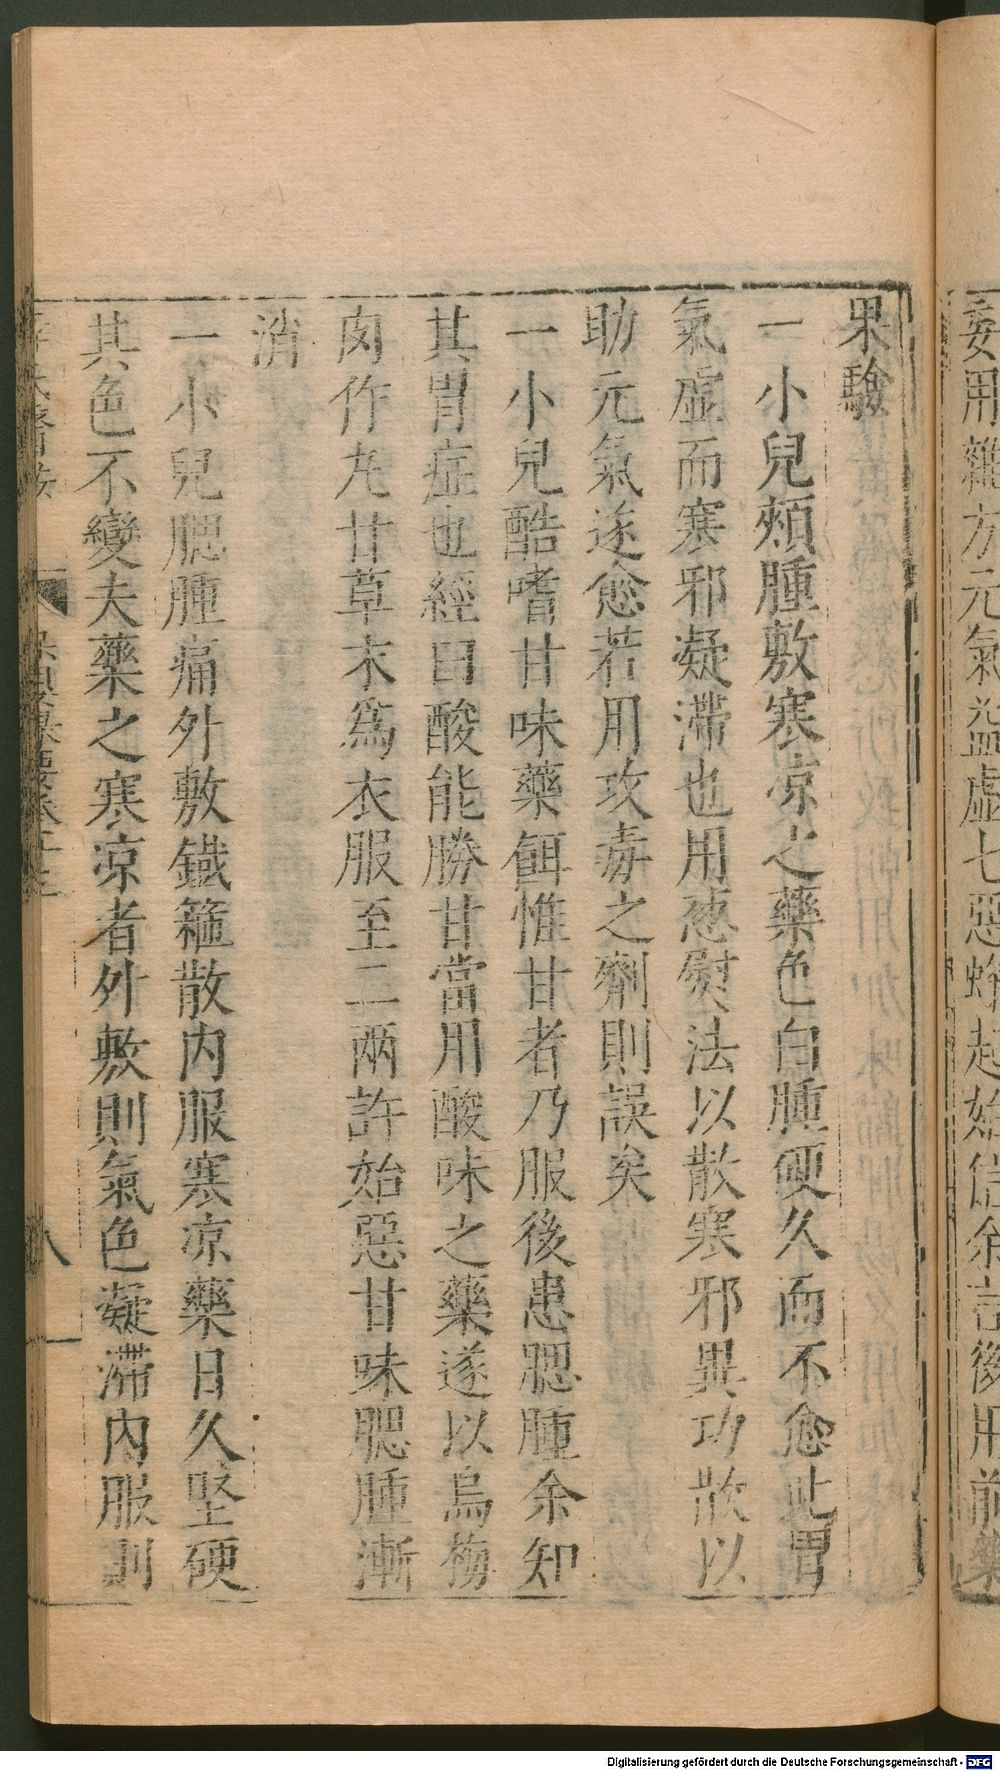 委用雜方元氣益虛七惡蜂起始信余言後用前藥
果驗
一小兒頰腫敷寒凉之藥色白腫硬久而不愈此胃
氣虛而寒邪凝滯也用葱熨法以散寒邪異功散以
助元氣遂愈若用攻毒之劑則誤矣
一小兒酷嗜甘味藥餌惟甘者乃服後患腮腫余知
其胃症也經曰酸能勝甘當用酸味之藥遂以烏梅
肉作丸甘草末爲衣服至二兩許始惡甘味腮腫漸
消
一小兒腮腫痛外敷鐵箍散内服寒凉藥日久堅硬
其色不變夫藥之寒凉者外敷則氣色凝滯内服則
八
Digitalisierung gefördert durch die Deutsche Forschungsgemeinschaft - DFG